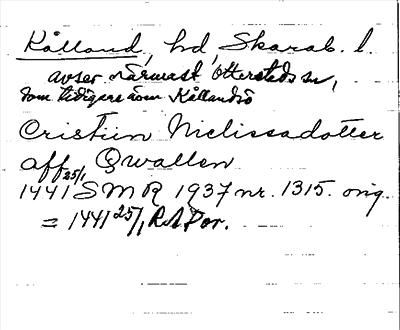 Kålland, hd, Skarab. l.
avser närmast Otterstads sn,
som tidigare även Kållandsö
Cristiin Niclissadotter
aff Qwallen
1441 25/1 SMR 1937 nr. 1315. orig.
= 1441 25/1, RA Per.